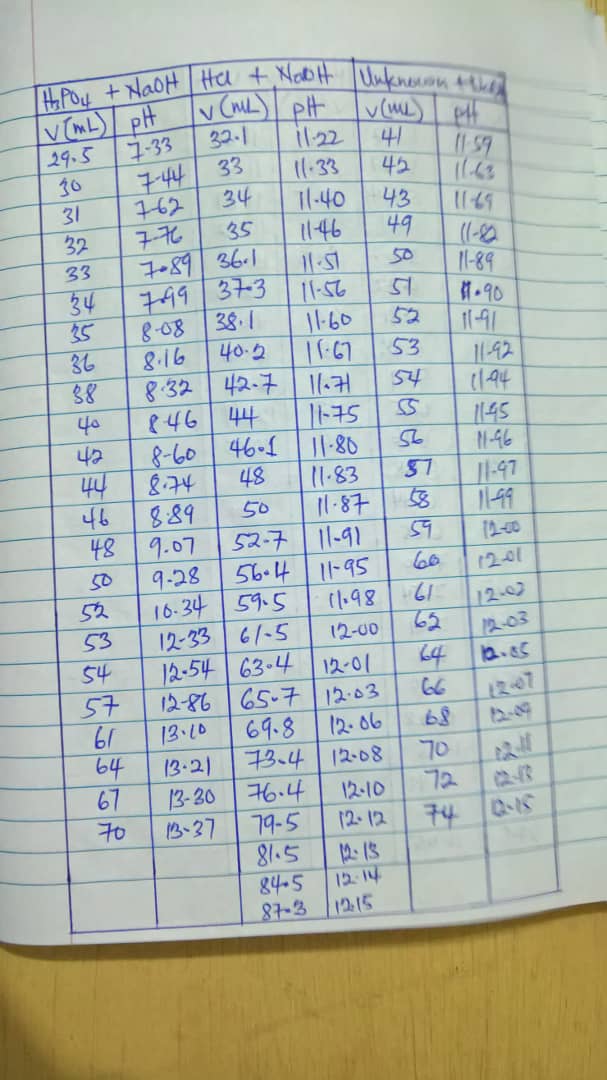 H3PO4 + NaOH | HCl + NaOH | Unknown +
V(mL) | pH | V(mL) | pH | V(mL) | pH
29.5 | 7.33 | 32.1 | 11.22 | 41 | 11.59
30 | 7.44 | 33 | 11.33 | 42 | 11.63
31 | 7.62 | 34 | 11.40 | 43 | 11.69
32 | 7.76 | 35 | 11.46 | 49 | 11.82
33 | 7.89 | 36.1 | 11.51 | 50 | 11.89
34 | 7.99 | 37.3 | 11.56 | 51 | 11.90
35 | 8.08 | 38.1 | 11.60 | 52 | 11.91
36 | 8.16 | 40.2 | 11.67 | 53 | 11.92
38 | 8.32 | 42.7 | 11.71 | 54 | 11.94
40 | 8.46 | 44 | 11.75 | 55 | 11.95
42 | 8.60 | 46.1 | 11.80 | 56 | 11.96
44 | 8.74 | 48 | 11.83 | 57 | 11.97
46 | 8.89 | 50 | 11.87 | 58 | 11.99
48 | 9.07 | 52.7 | 11.91 | 59 | 12.00
50 | 9.28 | 56.4 | 11.95 | 60 | 12.01
52 | 10.34 | 59.5 | 11.98 | 61 | 12.02
53 | 12.33 | 61.5 | 12.00 | 62 | 12.03
54 | 12.54 | 63.4 | 12.01 | 64 | 12.05
57 | 12.86 | 65.7 | 12.03 | 66 | 12.07
61 | 13.10 | 69.8 | 12.06 | 68 | 12.09
64 | 13.21 | 73.4 | 12.08 | 70 | 12.11
67 | 13.30 | 76.4 | 12.10 | 72 | 12.13
70 | 13.37 | 79.5 | 12.12 | 74 | 12.15
81.5 | 12.13
84.5 | 12.14
87.3 | 12.15